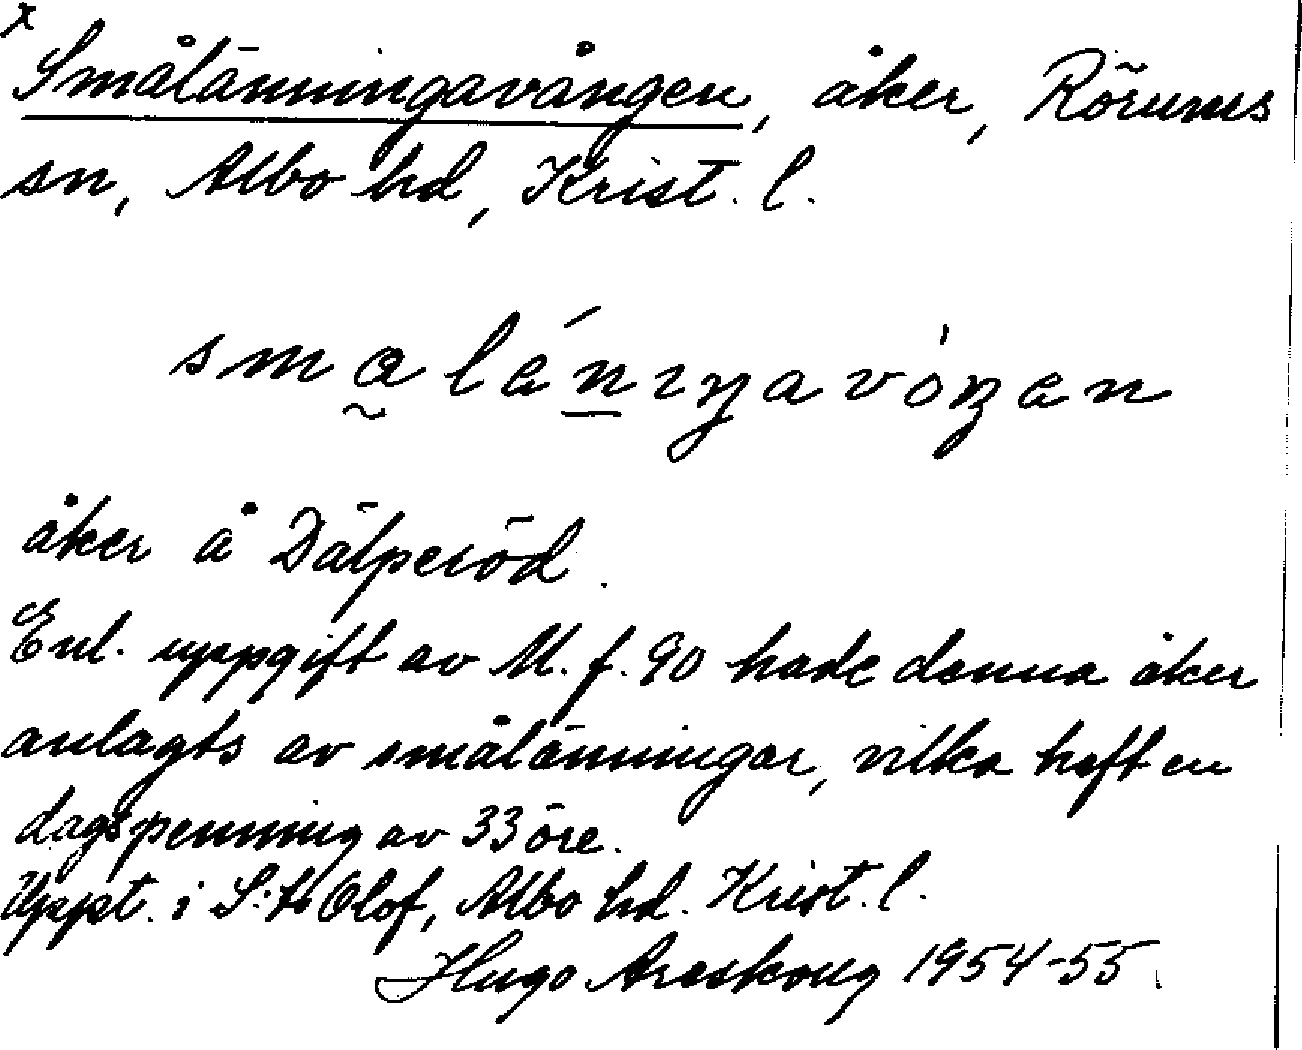 x
Smålänningavången, åker, Rörums
sn, Albo hd, Krist. l.
åker å Dälperöd.
Enl. uppgift av M. f. 90 hade denna åker
anlagts av smålänningar, vilka haft en
dagspenning av 33 öre.
Uppt. i S:t Olof, Albo hd. Krist. l.
Hugo Areskoug 1954-55.